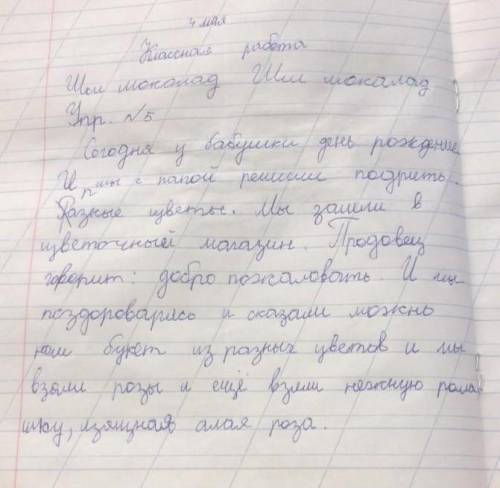 4 мая
Классная работа
Шли шоколад Шли шокалад
Упр. №5
Сегодня у бабушки день рождение
И мы с папой решили подрить
Разные цветы. Мы зашли в
цветочный магазин. Продовец
говорит: добро пожаловать. И мы
поздоровались и сказали можно
нам букет из разных цветов и мы
взяли розы и ещё взяли нежную рома
шку, изящная алая роза.